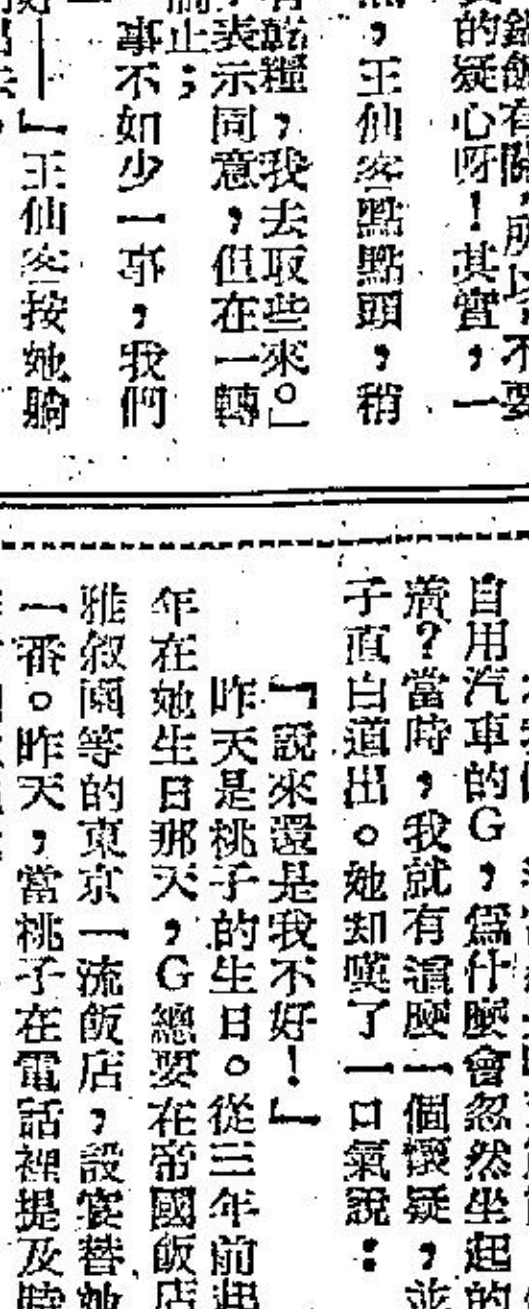 有關,所以,不要
的疑心呀!其實,一
,王仙客點點頭,稍
糧,我去取些來。」
表示同意,但在一轉
而止;
事不如少一事,我們
——』王仙客按她躺
自用汽車的G,爲什麼會忽然坐起的
?當時,我就有這麼一個懷疑,並
子直白道出。她却嘆了一口氣說:
『說來還是我不好!』
昨天是桃子的生日。從三年前起
年在她生日那天,G總要在帝國飯店
雅叙園等的東京一流飯店,設宴替她
一番。昨天,當桃子在電話裡提及時